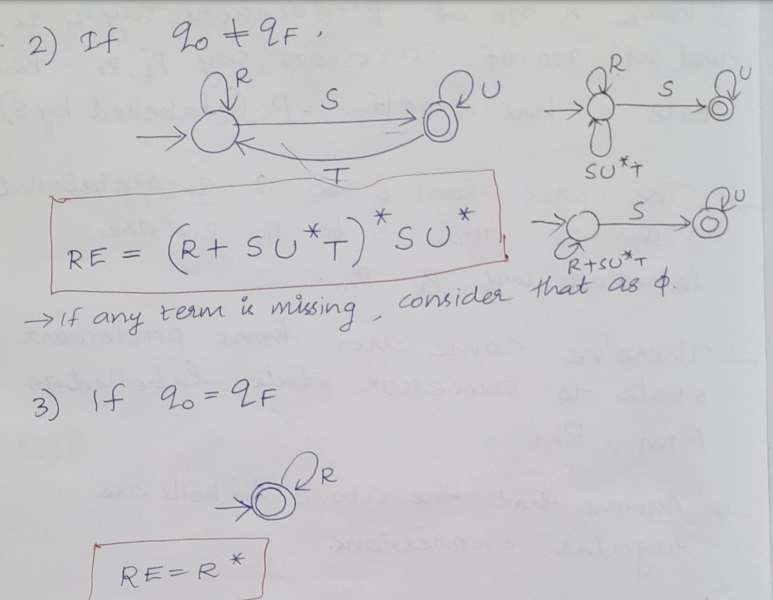 2) If q₀ ≠ q_F.
R
S
U
T
R
S
U
SU*T
S
U
R+SU*T
RE = (R + SU*T)* SU*
→ If any term is missing, consider that as ϕ.
3) If q₀ = q_F
R
RE = R*